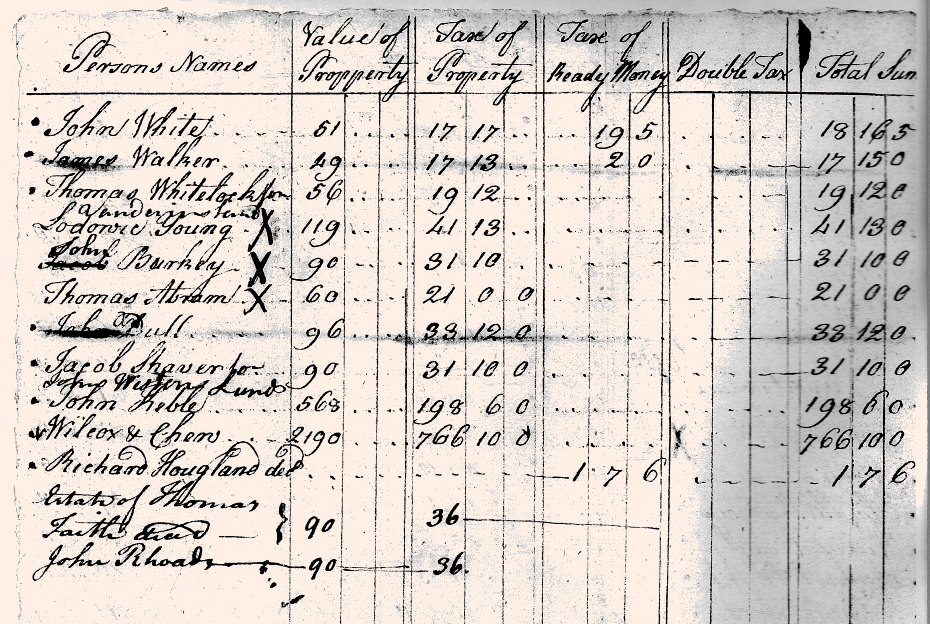 Persons Names Value of Propperty Tax of Property Taxe of Ready Money Double Tax Total Sum
John White 51 17 17 19 5 18 16 5
James Walker 49 17 13 2 0 17 15 0
Thomas Whitelock for 56 19 12 19 12 0
Lodowic Young X 119 41 13 41 13 0
John
Jacob Burkey X 90 31 10 31 10 0
Thomas Abram X 60 21 0 0 21 0 0
John Bull 96 33 12 0 33 12 0
Jacob Shaver for 90 31 10 0 31 10 0
John Land
John Keble 568 198 6 0 198 6 0
Wilcox & Chew 2190 766 10 0 766 10 0
Richard Hougland 1 7 6 1 7 6
Estate of Thomas
Faith dead 90 36
John Rhoads 90 36